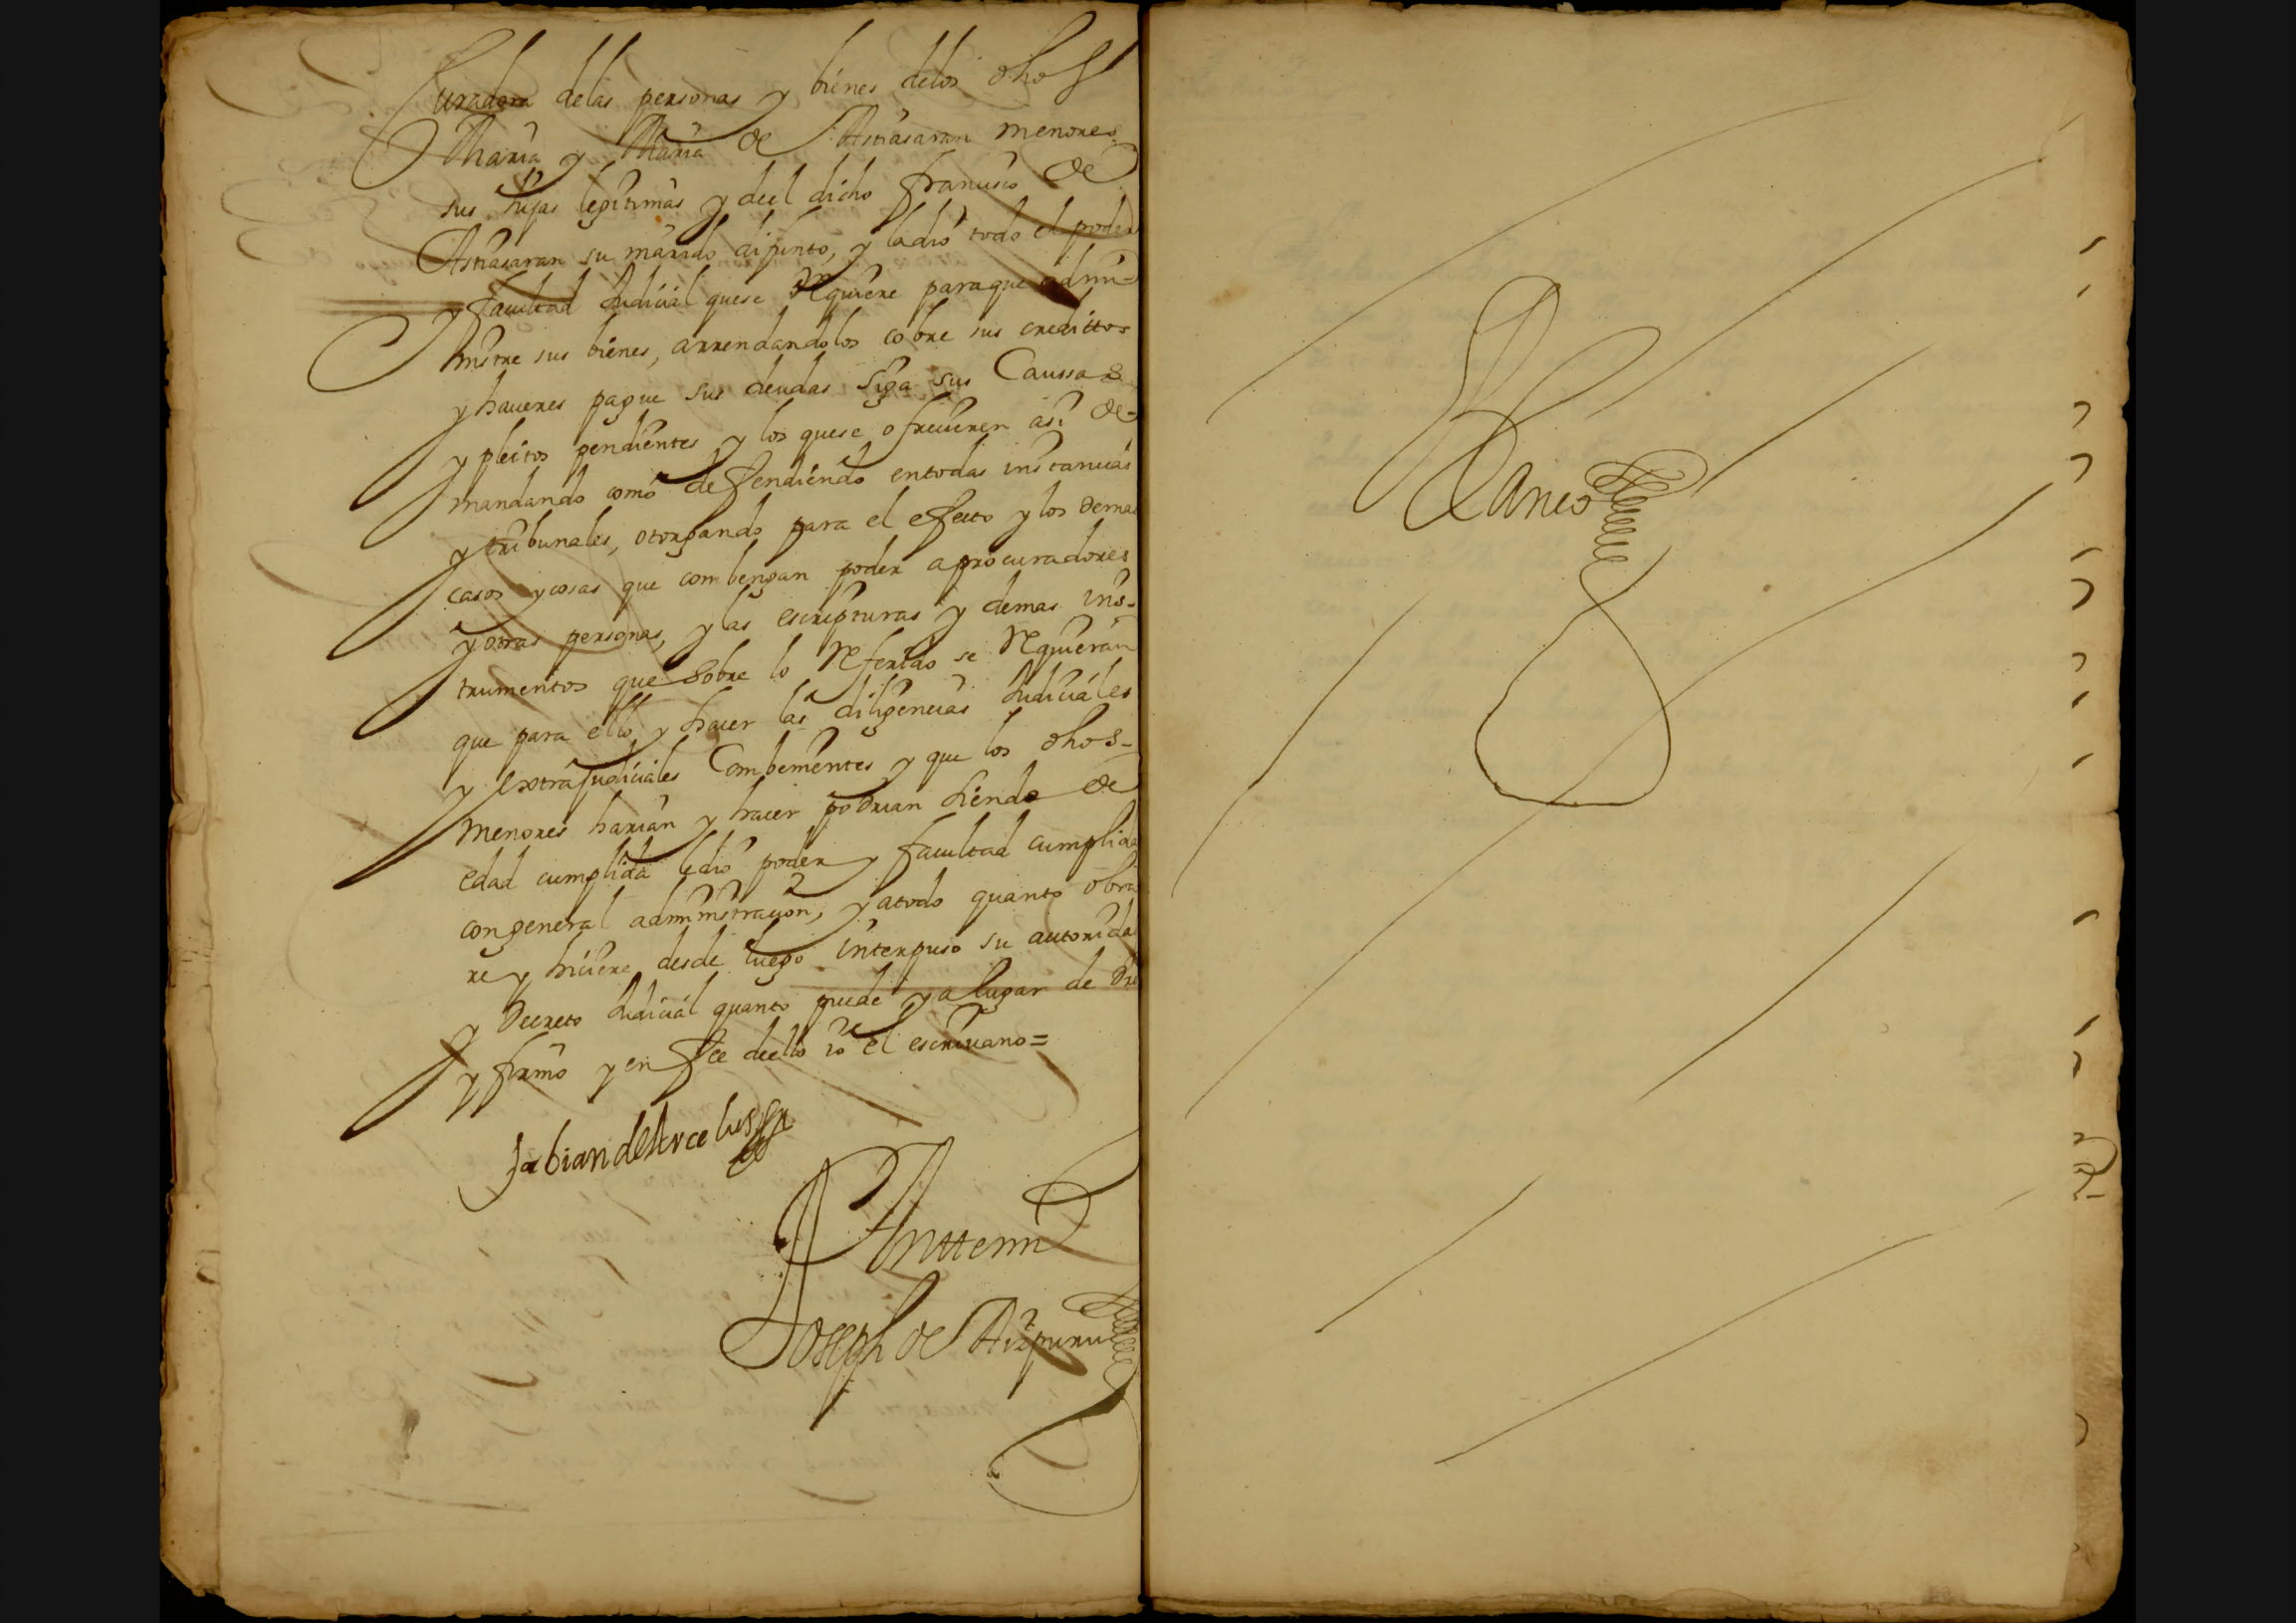 Curadora delas personas y bienes delos dhos
Maria y Maria de Astiasaran menores
sus hijas legitimas y deel dicho francisco de
Astiasaran su marido difunto, y ladio todo el poder
y facultad Judicial quese Requiere paraque admi-
nistre sus bienes, arrendandolos cobre sus credittos
y haueres pague sus deudas siga sus Caussas
y pleitos pendientes y los quese ofrecieren asi de-
mandando como defendiendo entodas instancias
y tribunales, otorgando para el efecto y los demas
casos y cosas que combengan poder aprocuradores
y otras personas, y las escripturas y demas ins-
trumentos que sobre lo Referido se Requieran
que para ello y hacer las diligencias Judiciales
y extrajudiciales Combenientes y que los dhos-
menores harian y hacer podrian siendo de
edad cumplida ledio poder y facultad cumplida
congeneral administracion, y atodo quanto obra
re y hiciere desde luego interpuso su autoridad
y Decreto Judicial quanto puede y a lugar de Dro
y firmo y en fee deello yo el escriuano=
fabian de Arce
Anttemi
Joseph de Aizpuru
Blanco